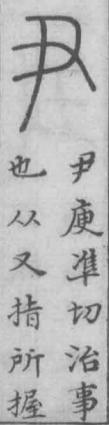 尹
尹庾準切治事
也从又指所握